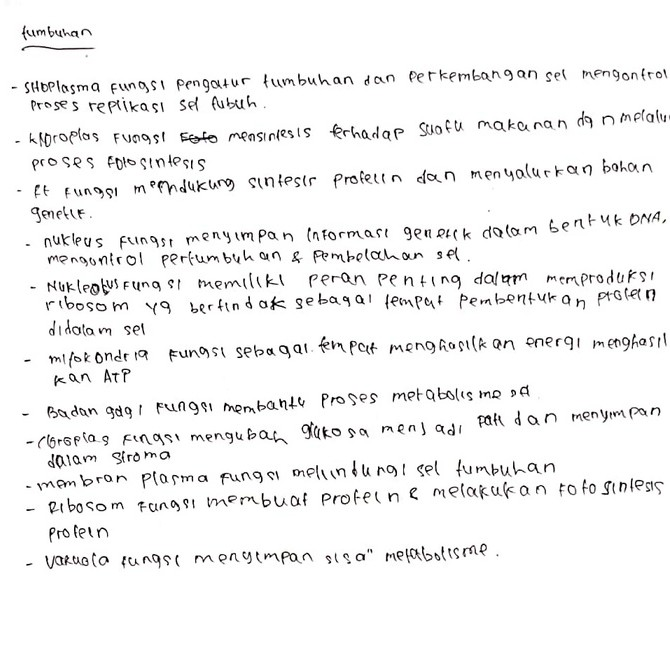 tumbuhan
- sitoplasma fungsi pengatur tumbuhan dan perkembangan sel mengontrol
proses replikasi sel tubuh.
- kloroplas fungsi mensintesis terhadap suatu makanan dgn melalui
proses fotosintesis
- Et fungsi mendukung sintesis protein dan menyalurkan bahan
genetik.
- nukleus fungsi menyimpan informasi genetik dalam bentuk DNA,
mengontrol pertumbuhan & pembelahan sel.
- Nukleolus fungsi memiliki peran penting dalam memproduksi
ribosom yg bertindak sebagai tempat pembentukan protein
didalam sel
- mitokondria fungsi sebagai tempat menghasilkan energi menghasil
kan ATP
- Badan golgi fungsi membantu proses metabolisme
- kloroplas fungsi mengubah glukosa menjadi pati dan menyimpan
dalam stroma
- membran plasma fungsi melindungi sel tumbuhan
- Ribosom fungsi membuat protein & melakukan fotosintesis
protein
- vakuola fungsi menyimpan sisa" metabolisme.